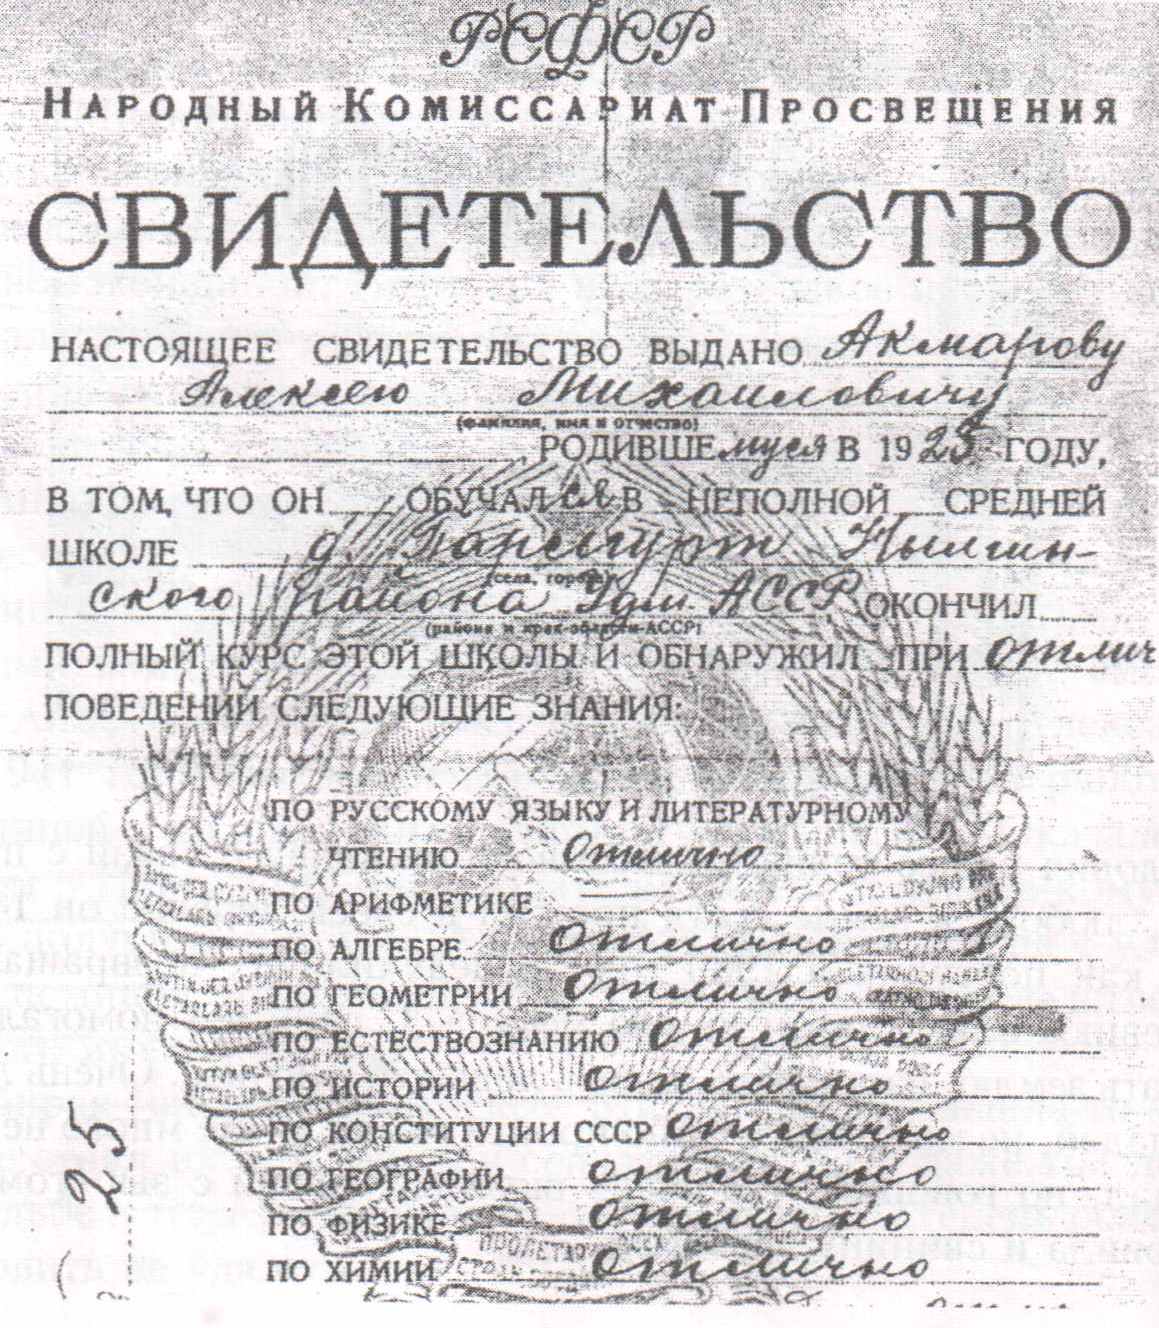 РСФСР
НАРОДНЫЙ КОМИССАРИАТ ПРОСВЕЩЕНИЯ
СВИДЕТЕЛЬСТВО
НАСТОЯЩЕЕ СВИДЕТЕЛЬСТВО ВЫДАНО Акмарову
Алексею Михаиловичу
(фамилия, имя и отчество)
РОДИВШЕмуся В 1925 ГОДУ,
В ТОМ, ЧТО ОН ОБУЧАЛся В НЕПОЛНОЙ СРЕДНЕЙ
ШКОЛЕ д. Нылгин-
(села, города)
ского района Удм. АССР ОКОНЧИЛ
(района и края-области-АССР)
ПОЛНЫЙ КУРС ЭТОЙ ШКОЛЫ И ОБНАРУЖИЛ ПРИ отлич
ПОВЕДЕНИИ СЛЕДУЮЩИЕ ЗНАНИЯ:
ПО РУССКОМУ ЯЗЫКУ И ЛИТЕРАТУРНОМУ
ЧТЕНИЮ отлично
ПО АРИФМЕТИКЕ
ПО АЛГЕБРЕ отлично
ПО ГЕОМЕТРИИ отлично
ПО ЕСТЕСТВОЗНАНИЮ отлично
ПО ИСТОРИИ отлично
ПО КОНСТИТУЦИИ СССР отлично
ПО ГЕОГРАФИИ отлично
ПО ФИЗИКЕ отлично
ПО ХИМИИ отлично